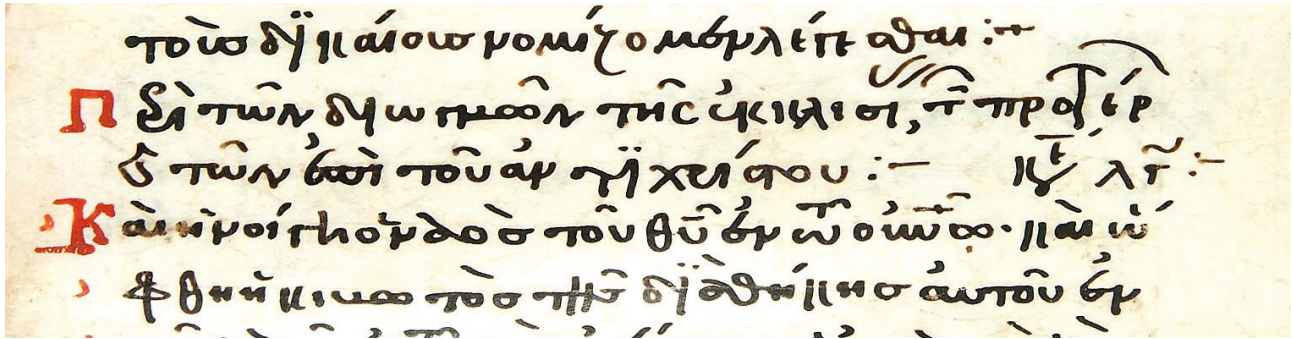 τοῖς δϊκαίοις νομίζομεν λέγεσθαι :+
Περὶ τῶν διωγμῶν τῆς ἐκκλησί, τ προτέρ
ϗ τῶν ἐπὶ τοῦ ἀντϊχρίστου :— κε λγ :-
Καὶ ἠνοίγη ὁ ναὸς τοῦ θυ ἐν τῶ οὐνω· καὶ ὤ
φθη ἡ κιβωτὸς τῆς δϊαθήκης αὐτοῦ ἐν